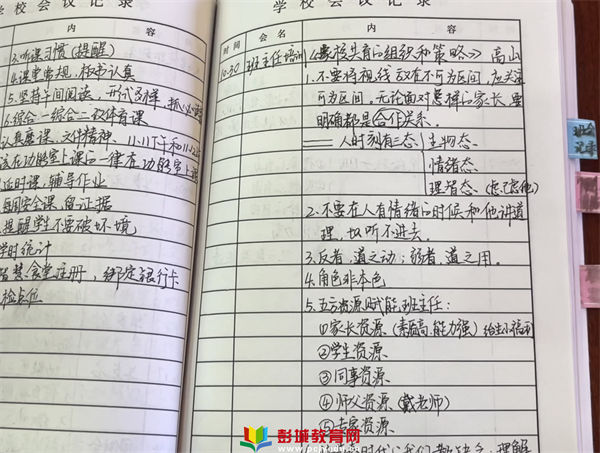 学校会议记录
内 容
3.听课习惯(提醒)
4.课堂常规,板书认真
5.坚持午间阅读,形式多样,抓
6.综合一综合二权体育课
认真磨课、文件精神、11.11下午和11.12
该在功能室上课的一律在功能室上课
延时课,辅导作业
每周安全课,留证据
提醒学生不要破坏环境
学时统计
智慧食堂注册,绑定银行卡
检点位
学校会议记录
时间 会名 内 容
10.30 班主任培训 《家校共育的组织和策略》 高山
1.不要将视线放在不可为区间,应关注
可为区间。无论面对怎样的家长,要
明确都是合作关系。
人时刻有三态 生物态
情绪态
理智态(虑己虑他)
2.不要在人有情绪的时候和他讲道
理,以听不进去。
3.反者,道之动;弱者,道之用。
4.角色非本色
5.五方资源赋能班主任:
①家长资源(素质高、能力强)给生小福利
②学生资源
③同事资源
④师父资源(戴老师)
⑤专家资源
时代
理解
班会记录
彭城教育网